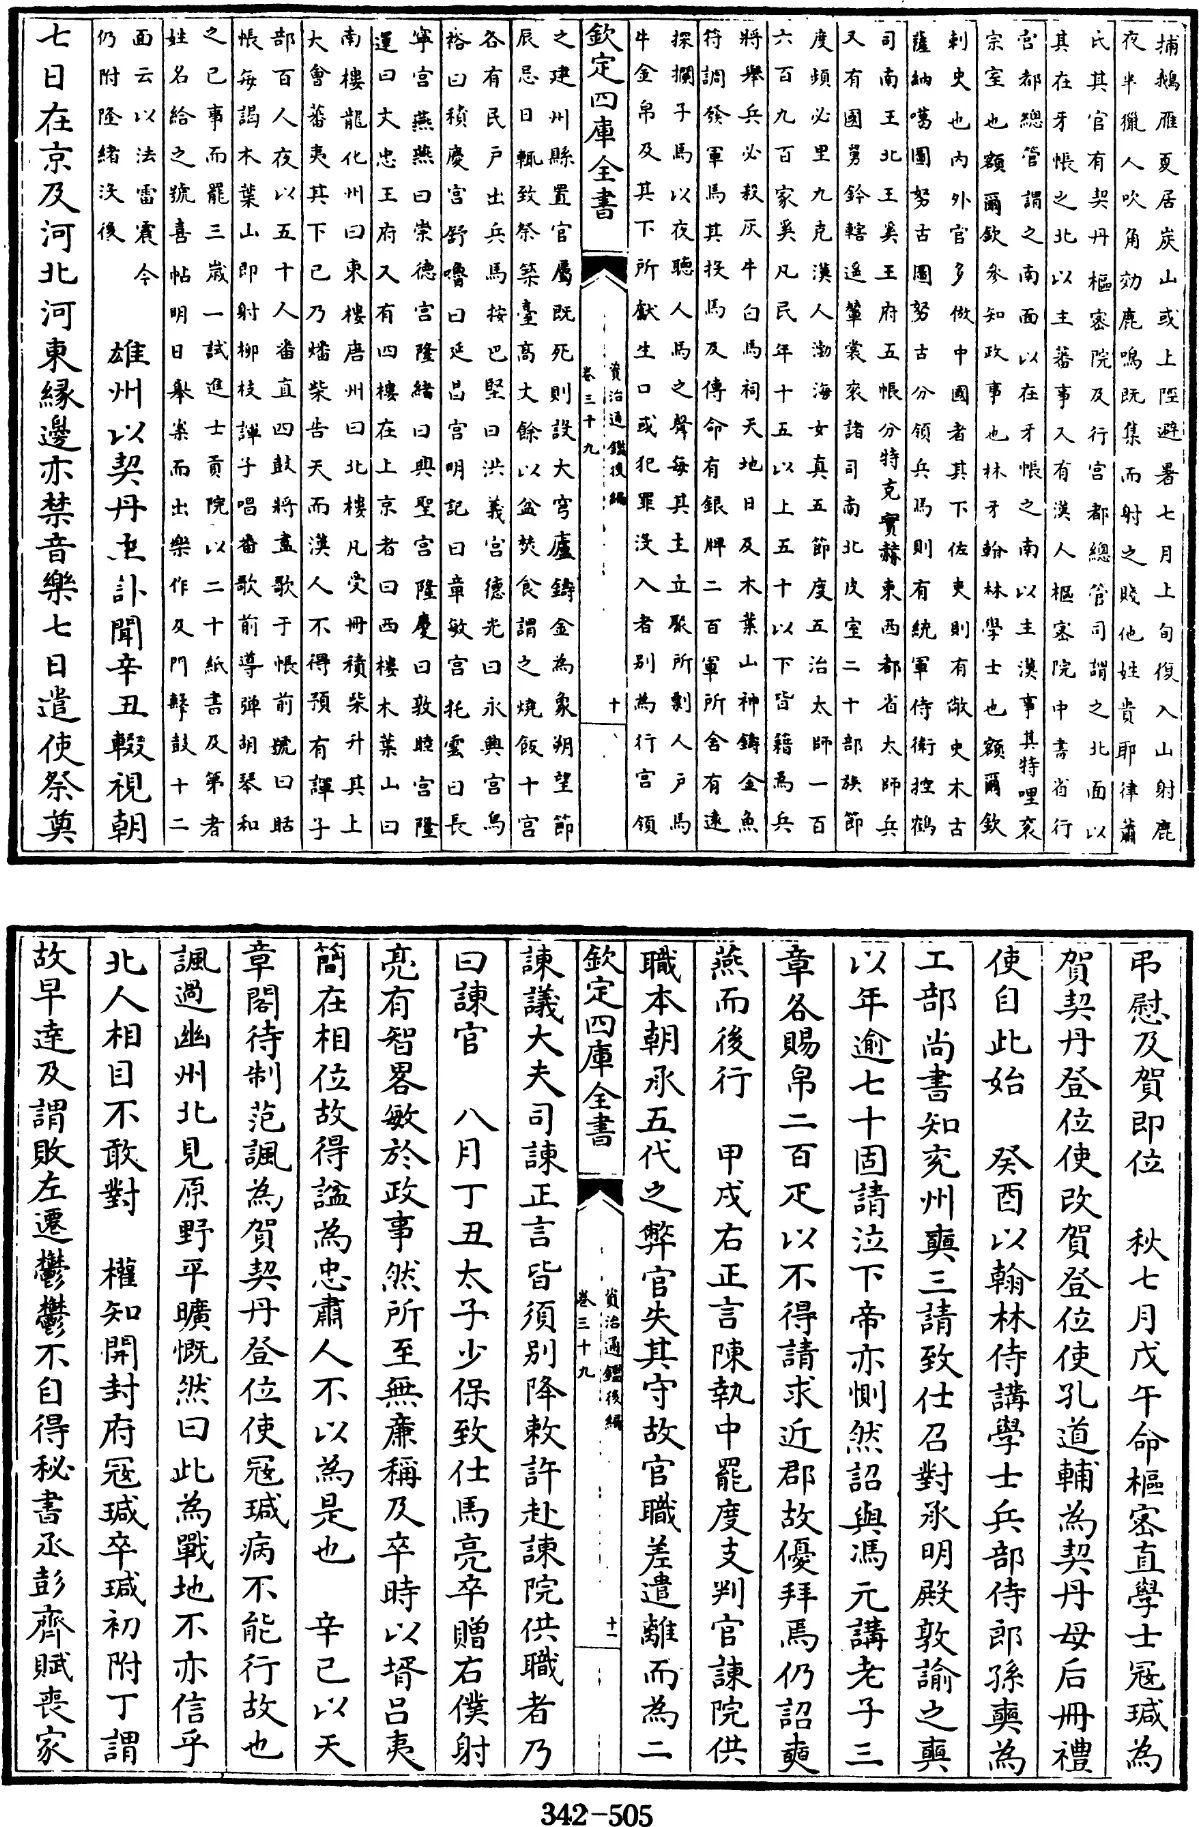 捕鵝雁夏居炭山或上陘避暑七月上旬復入山射鹿
夜半獵人吹角効鹿鳴既集而射之賤他姓貴耶律蕭
氏其官有契丹樞密院及行宮都總管司謂之北面以
其在牙帳之北以主蕃事又有漢人樞密院中書省行
宮都總管謂之南面以在牙帳之南以主漢事其特哩衮
宗室也額爾欽參知政事也林牙翰林學士也額爾欽
刺史也内外官多倣中國者其下佐吏則有敞史木古
薩納噶圖努古圖努古分領兵馬則有統軍侍衛控鶴
司南王北王奚王府五帳分特克實赫東西都省太師兵
又有國舅鈐轄遥輦裳衮諸司南北皮室二十部族節
度頻必里九克漢人渤海女真五節度五治太師一百
六百九百家奚凡民年十五以上五十以下皆籍為兵
將舉兵必殺灰牛白馬祠天地日及木葉山神鑄金魚
符調發軍馬其投馬及傳命有銀牌二百軍所舍有逺
探攔子馬以夜聽人馬之聲每其主立聚所剽人户馬
牛金帛及其下所獻生口或犯罪没入者别為行宮領
欽定四庫全書
資治通鑑後編
卷三十九
十
之建州縣置官屬既死則設大穹廬鑄金為象朔望節
辰忌日輒致祭築臺高丈餘以盆焚食謂之燒飯十宮
各有民户出兵馬按巴堅曰洪義宮德光曰永興宮烏
裕曰積慶宮舒嚕曰延昌宮明記曰章敏宮托雲曰長
寧宮燕燕曰崇德宮隆緒曰興聖宮隆慶曰敦睦宮隆
運曰文忠王府又有四樓在上京者曰西樓木葉山曰
南樓龍化州曰東樓唐州曰北樓凡受冊積柴升其上
大會蕃夷其下已乃燔柴告天而漢人不得預有諢子
部百人夜以五十人番直四鼓將盡歌于帳前號曰聒
帳每謁木葉山即射柳枝諢子唱番歌前導彈胡琴和
之已事而罷三歲一試進士貢院以二十紙書及第者
姓名給之號喜帖明日舉案而出樂作及門擊鼓十二
面云以法雷震今
仍附隆緒没後
雄州以契丹主訃聞辛丑輟視朝
七日在京及河北河東緣邊亦禁音樂七日遣使祭奠
弔慰及賀即位　秋七月戊午命樞密直學士寇瑊為
賀契丹登位使改賀登位使孔道輔為契丹母后冊禮
使自此始　癸酉以翰林侍講學士兵部侍郎孫奭為
工部尚書知兖州奭三請致仕召對承明殿敦諭之奭
以年逾七十固請泣下帝亦惻然詔與馮元講老子三
章各賜帛二百疋以不得請求近郡故優拜焉仍詔奭
燕而後行　甲戌右正言陳執中罷度支判官諫院供
職本朝承五代之弊官失其守故官職差遣離而為二
欽定四庫全書
資治通鑑後編
卷三十九
十一
諫議大夫司諫正言皆須别降敕許赴諫院供職者乃
曰諫官　八月丁丑太子少保致仕馬亮卒贈右僕射
亮有智畧敏於政事然所至無亷稱及卒時以壻吕夷
簡在相位故得諡為忠肅人不以為是也　辛已以天
章閣待制范諷為賀契丹登位使寇瑊病不能行故也
諷過幽州北見原野平曠慨然曰此為戰地不亦信乎
北人相目不敢對　權知開封府寇瑊卒瑊初附丁謂
故早達及謂敗左遷鬱鬱不自得秘書丞彭齊賦喪家
342-505